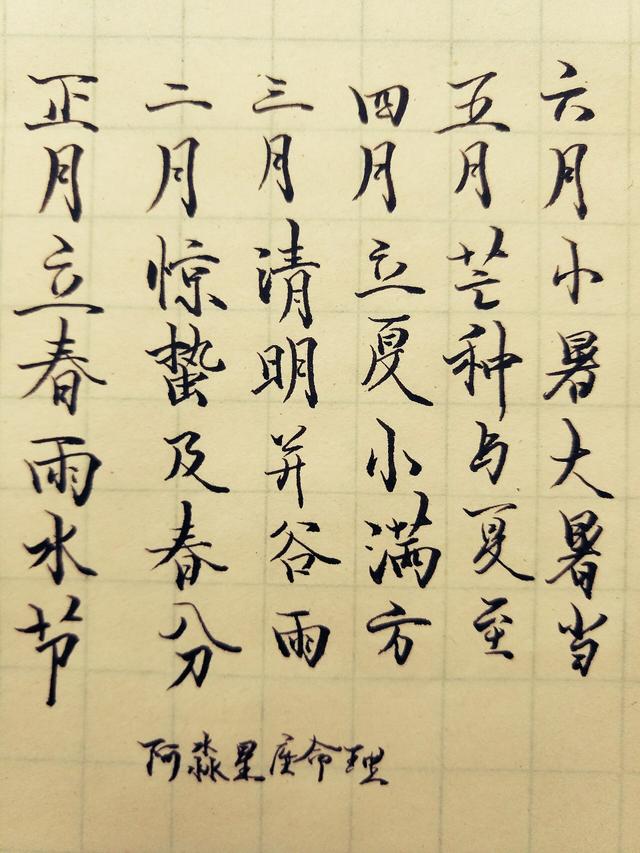 正月立春雨水节
二月惊蛰及春分
三月清明并谷雨
四月立夏小满方
五月芒种与夏至
六月小暑大暑当
阿淼星座命理